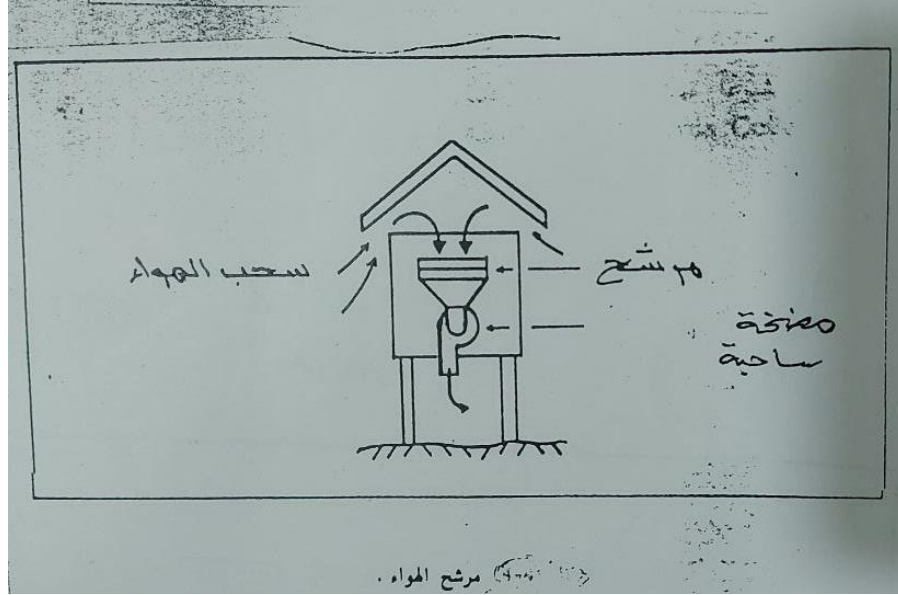 سحب الهواء
مرشح
مضخة
ساحبة
مرشح الهواء .